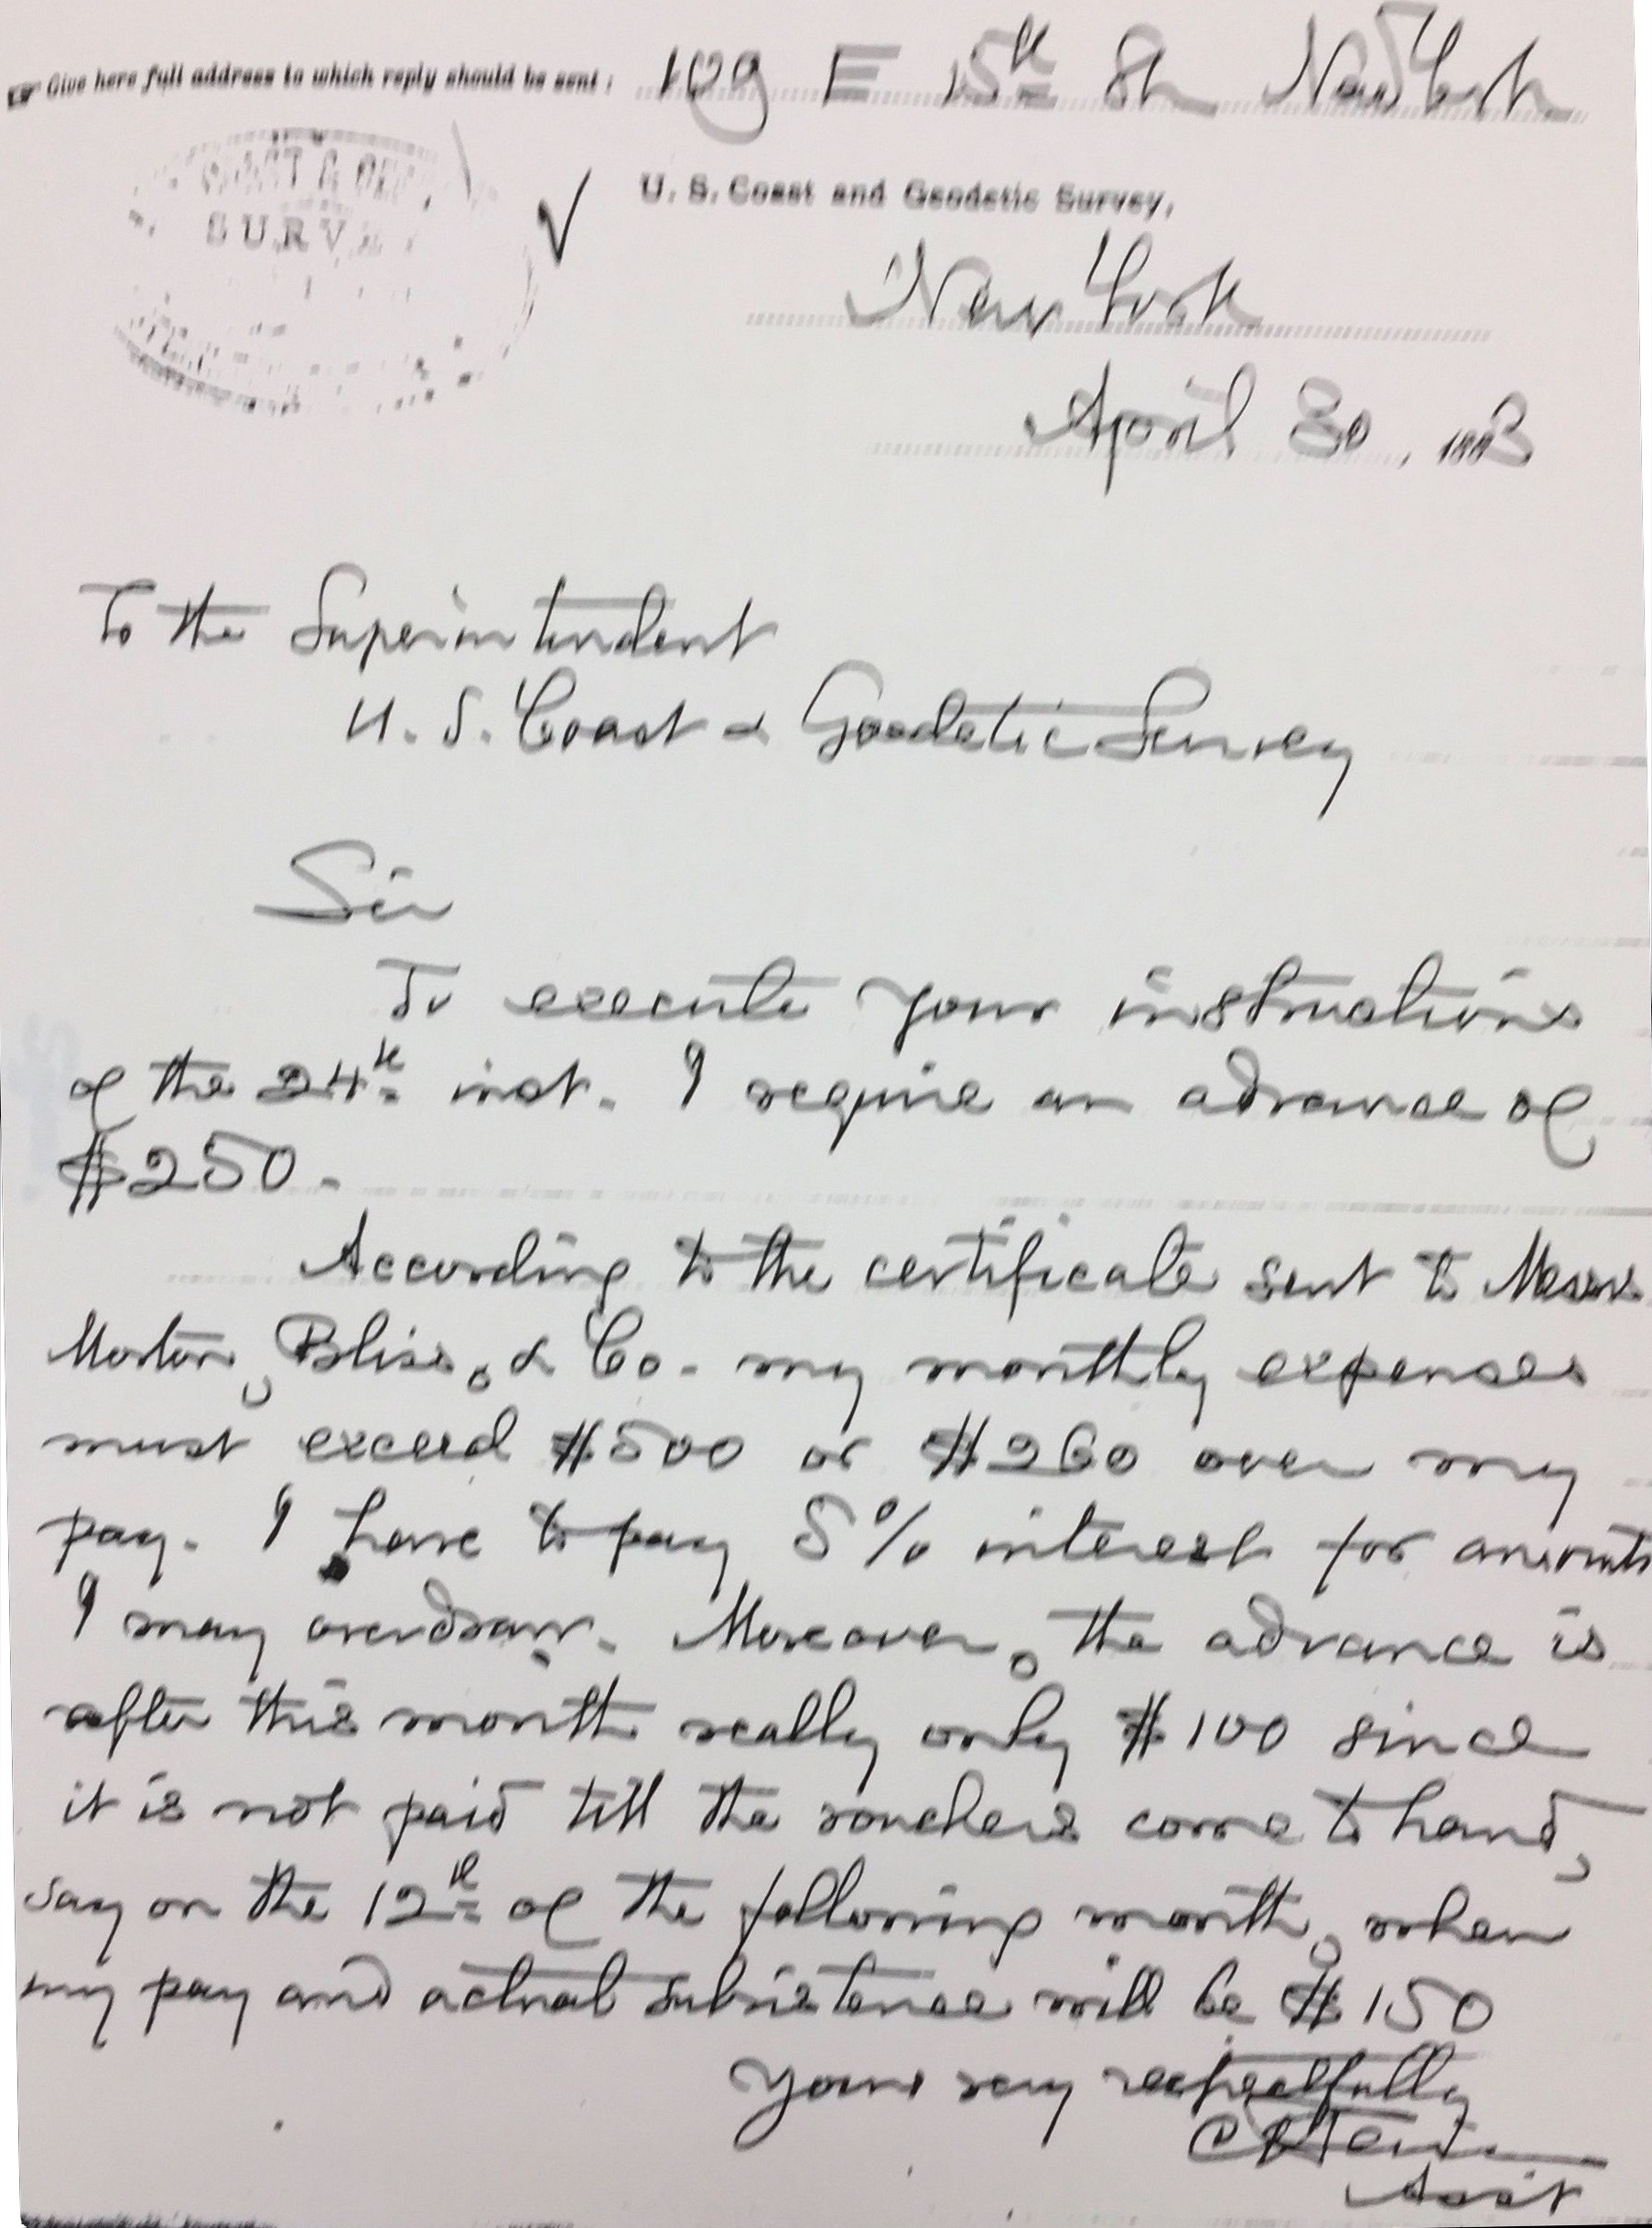 Give here full address to which reply should be sent: 129 E 15th St New York
SURVE
U. S. Coast and Geodetic Survey,
New York
April 30, 1883
To the Superintendent
U. S. Coast & Geodetic Survey
Sir
To execute your instructions
of the 24th inst. I require an advance of
$250.
According to the certificate sent to Messrs
Morton, Bliss, & Co. my monthly expenses
must exceed $500 or $260 over my
pay. I have to pay 5% interest for amounts
I may overdraw. Moreover, the advance is
after this month really only $100 since
it is not paid till the vouchers come to hand,
say on the 12th of the following month, when
my pay and actual subsistence will be $150
Yours very respectfully
Asst